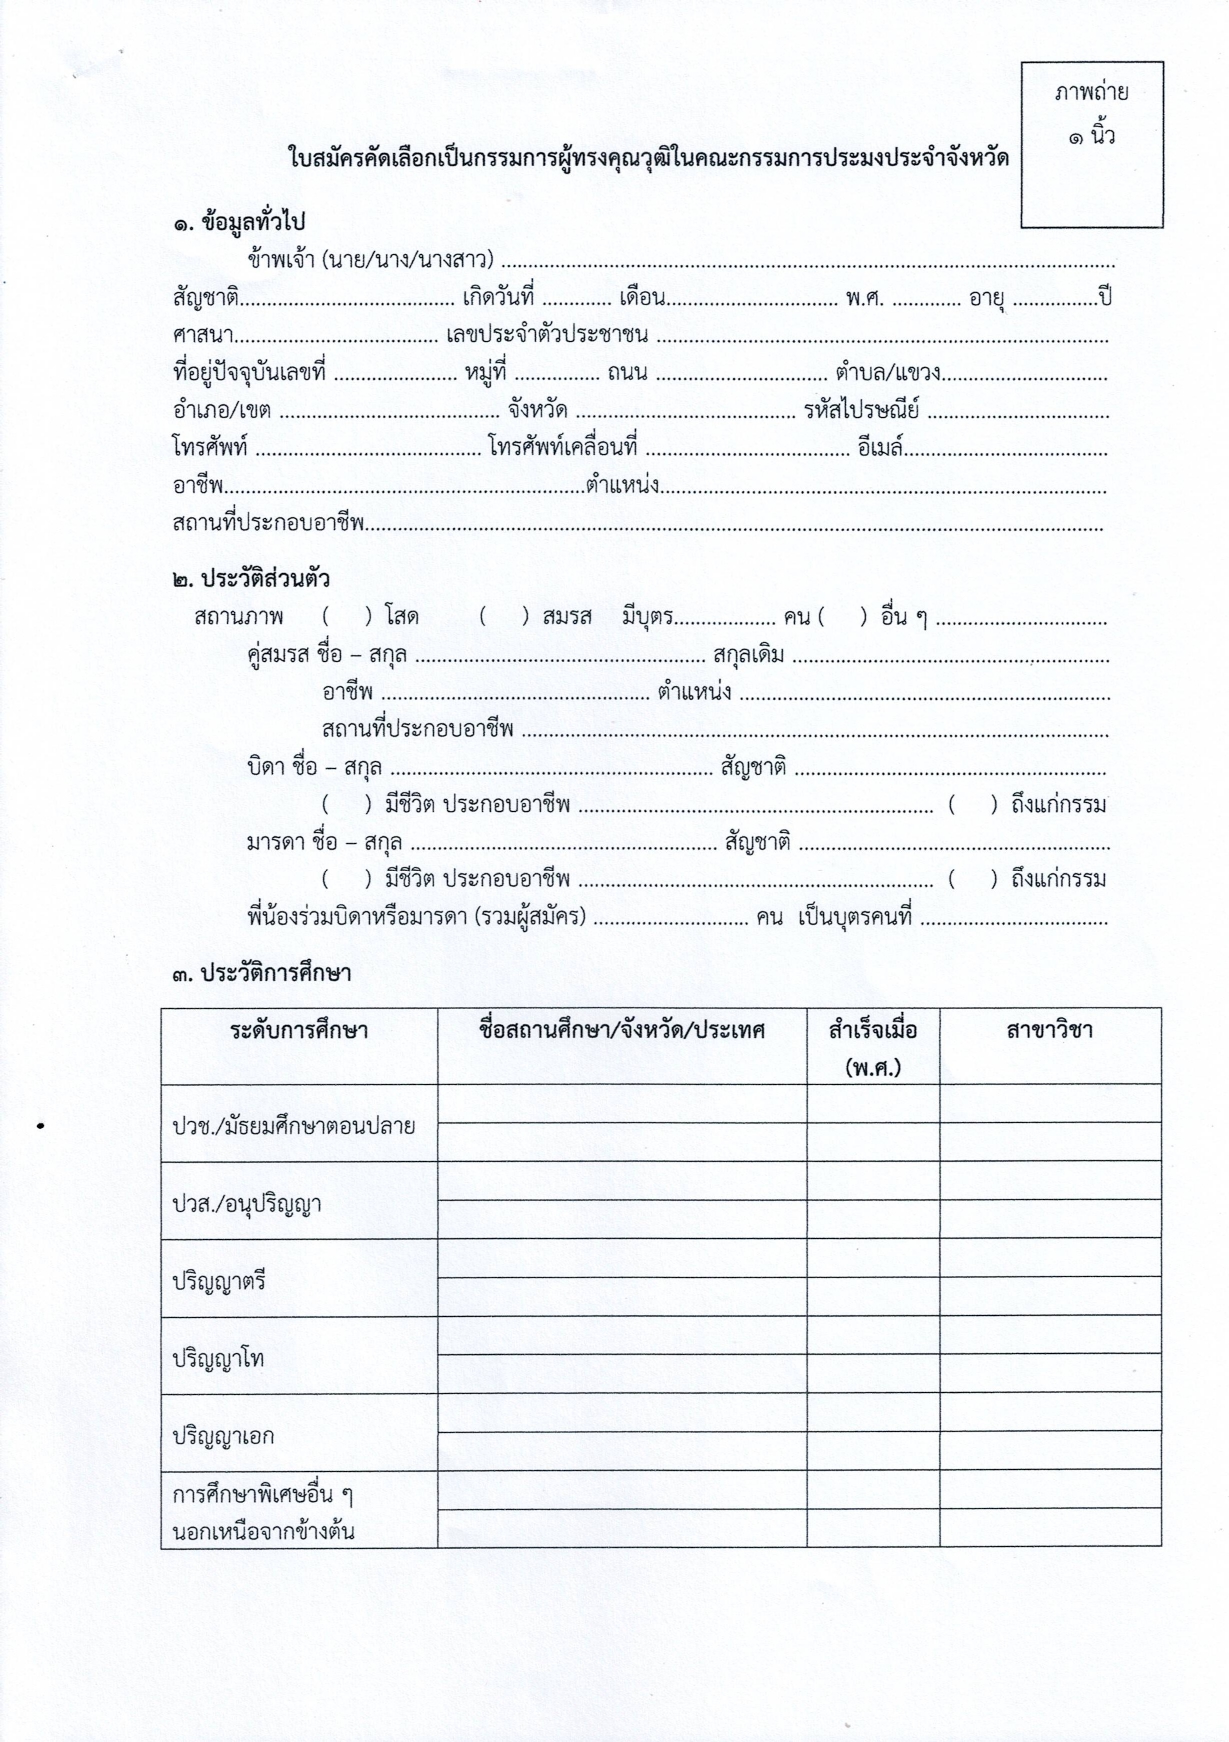 ภาพถ่าย
๑ นิ้ว
ใบสมัครคัดเลือกเป็นกรรมการผู้ทรงคุณวุฒิในคณะกรรมการประมงประจำจังหวัด
๑. ข้อมูลทั่วไป
ข้าพเจ้า (นาย/นาง/นางสาว) ........................................
สัญชาติ.................... เกิดวันที่ ............. เดือน.................... พ.ศ. ............. อายุ ................ปี
ศาสนา.................... เลขประจำตัวประชาชน ........................................
ที่อยู่ปัจจุบันเลขที่ .................... หมู่ที่ ................ ถนน .................... ตำบล/แขวง....................
อำเภอ/เขต .................... จังหวัด .................... รหัสไปรษณีย์ ....................
โทรศัพท์ .................... โทรศัพท์เคลื่อนที่ .................... อีเมล์....................
อาชีพ........................................ตำแหน่ง........................................
สถานที่ประกอบอาชีพ........................................
๒. ประวัติส่วนตัว
สถานภาพ ( ) โสด ( ) สมรส มีบุตร................... คน ( ) อื่น ๆ ....................
คู่สมรส ชื่อ – สกุล ........................................ สกุลเดิม ........................................
อาชีพ ........................................ ตำแหน่ง ........................................
สถานที่ประกอบอาชีพ ........................................
บิดา ชื่อ – สกุล ........................................ สัญชาติ ........................................
( ) มีชีวิต ประกอบอาชีพ ........................................ ( ) ถึงแก่กรรม
มารดา ชื่อ – สกุล ........................................ สัญชาติ ........................................
( ) มีชีวิต ประกอบอาชีพ ........................................ ( ) ถึงแก่กรรม
พี่น้องร่วมบิดาหรือมารดา (รวมผู้สมัคร) .................... คน เป็นบุตรคนที่ ....................
๓. ประวัติการศึกษา
ระดับการศึกษา ชื่อสถานศึกษา/จังหวัด/ประเทศ สำเร็จเมื่อ สาขาวิชา
(พ.ศ.)
ปวช./มัธยมศึกษาตอนปลาย
ปวส./อนุปริญญา
ปริญญาตรี
ปริญญาโท
ปริญญาเอก
การศึกษาพิเศษอื่น ๆ
นอกเหนือจากข้างต้น